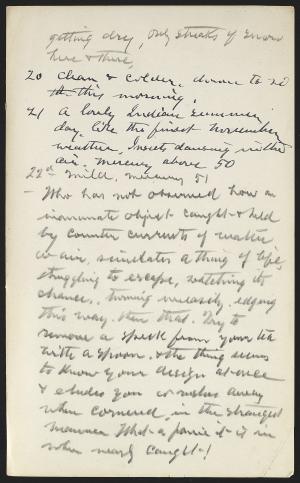 getting dry, only streaks of snow
here & there,
20 Clear & colder. down to 20
this morning,
21 A lovely Indian Summer
day, like the finest November
weather. Insects dancing in the
air. Mercury above 50
22nd Mild, mercury 51
— Who has not observed how an
inanimate object caught & held
by counter currents of water
or air, simulates a thing of life,
struggling to escape, watching its
chances, turning uneasily, edging
this way, then that. Try to
remove a speck from your tea
with a spoon, & the thing seems
to know your design at once
& eludes you or rushes away
when cornered, in the strangest
manner. What a panic it is in
when nearly caught!